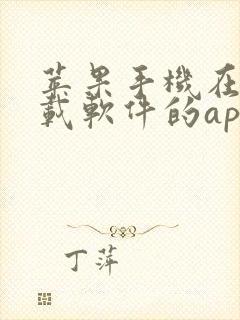 苹果手機在
載軟件的ap
丁萍